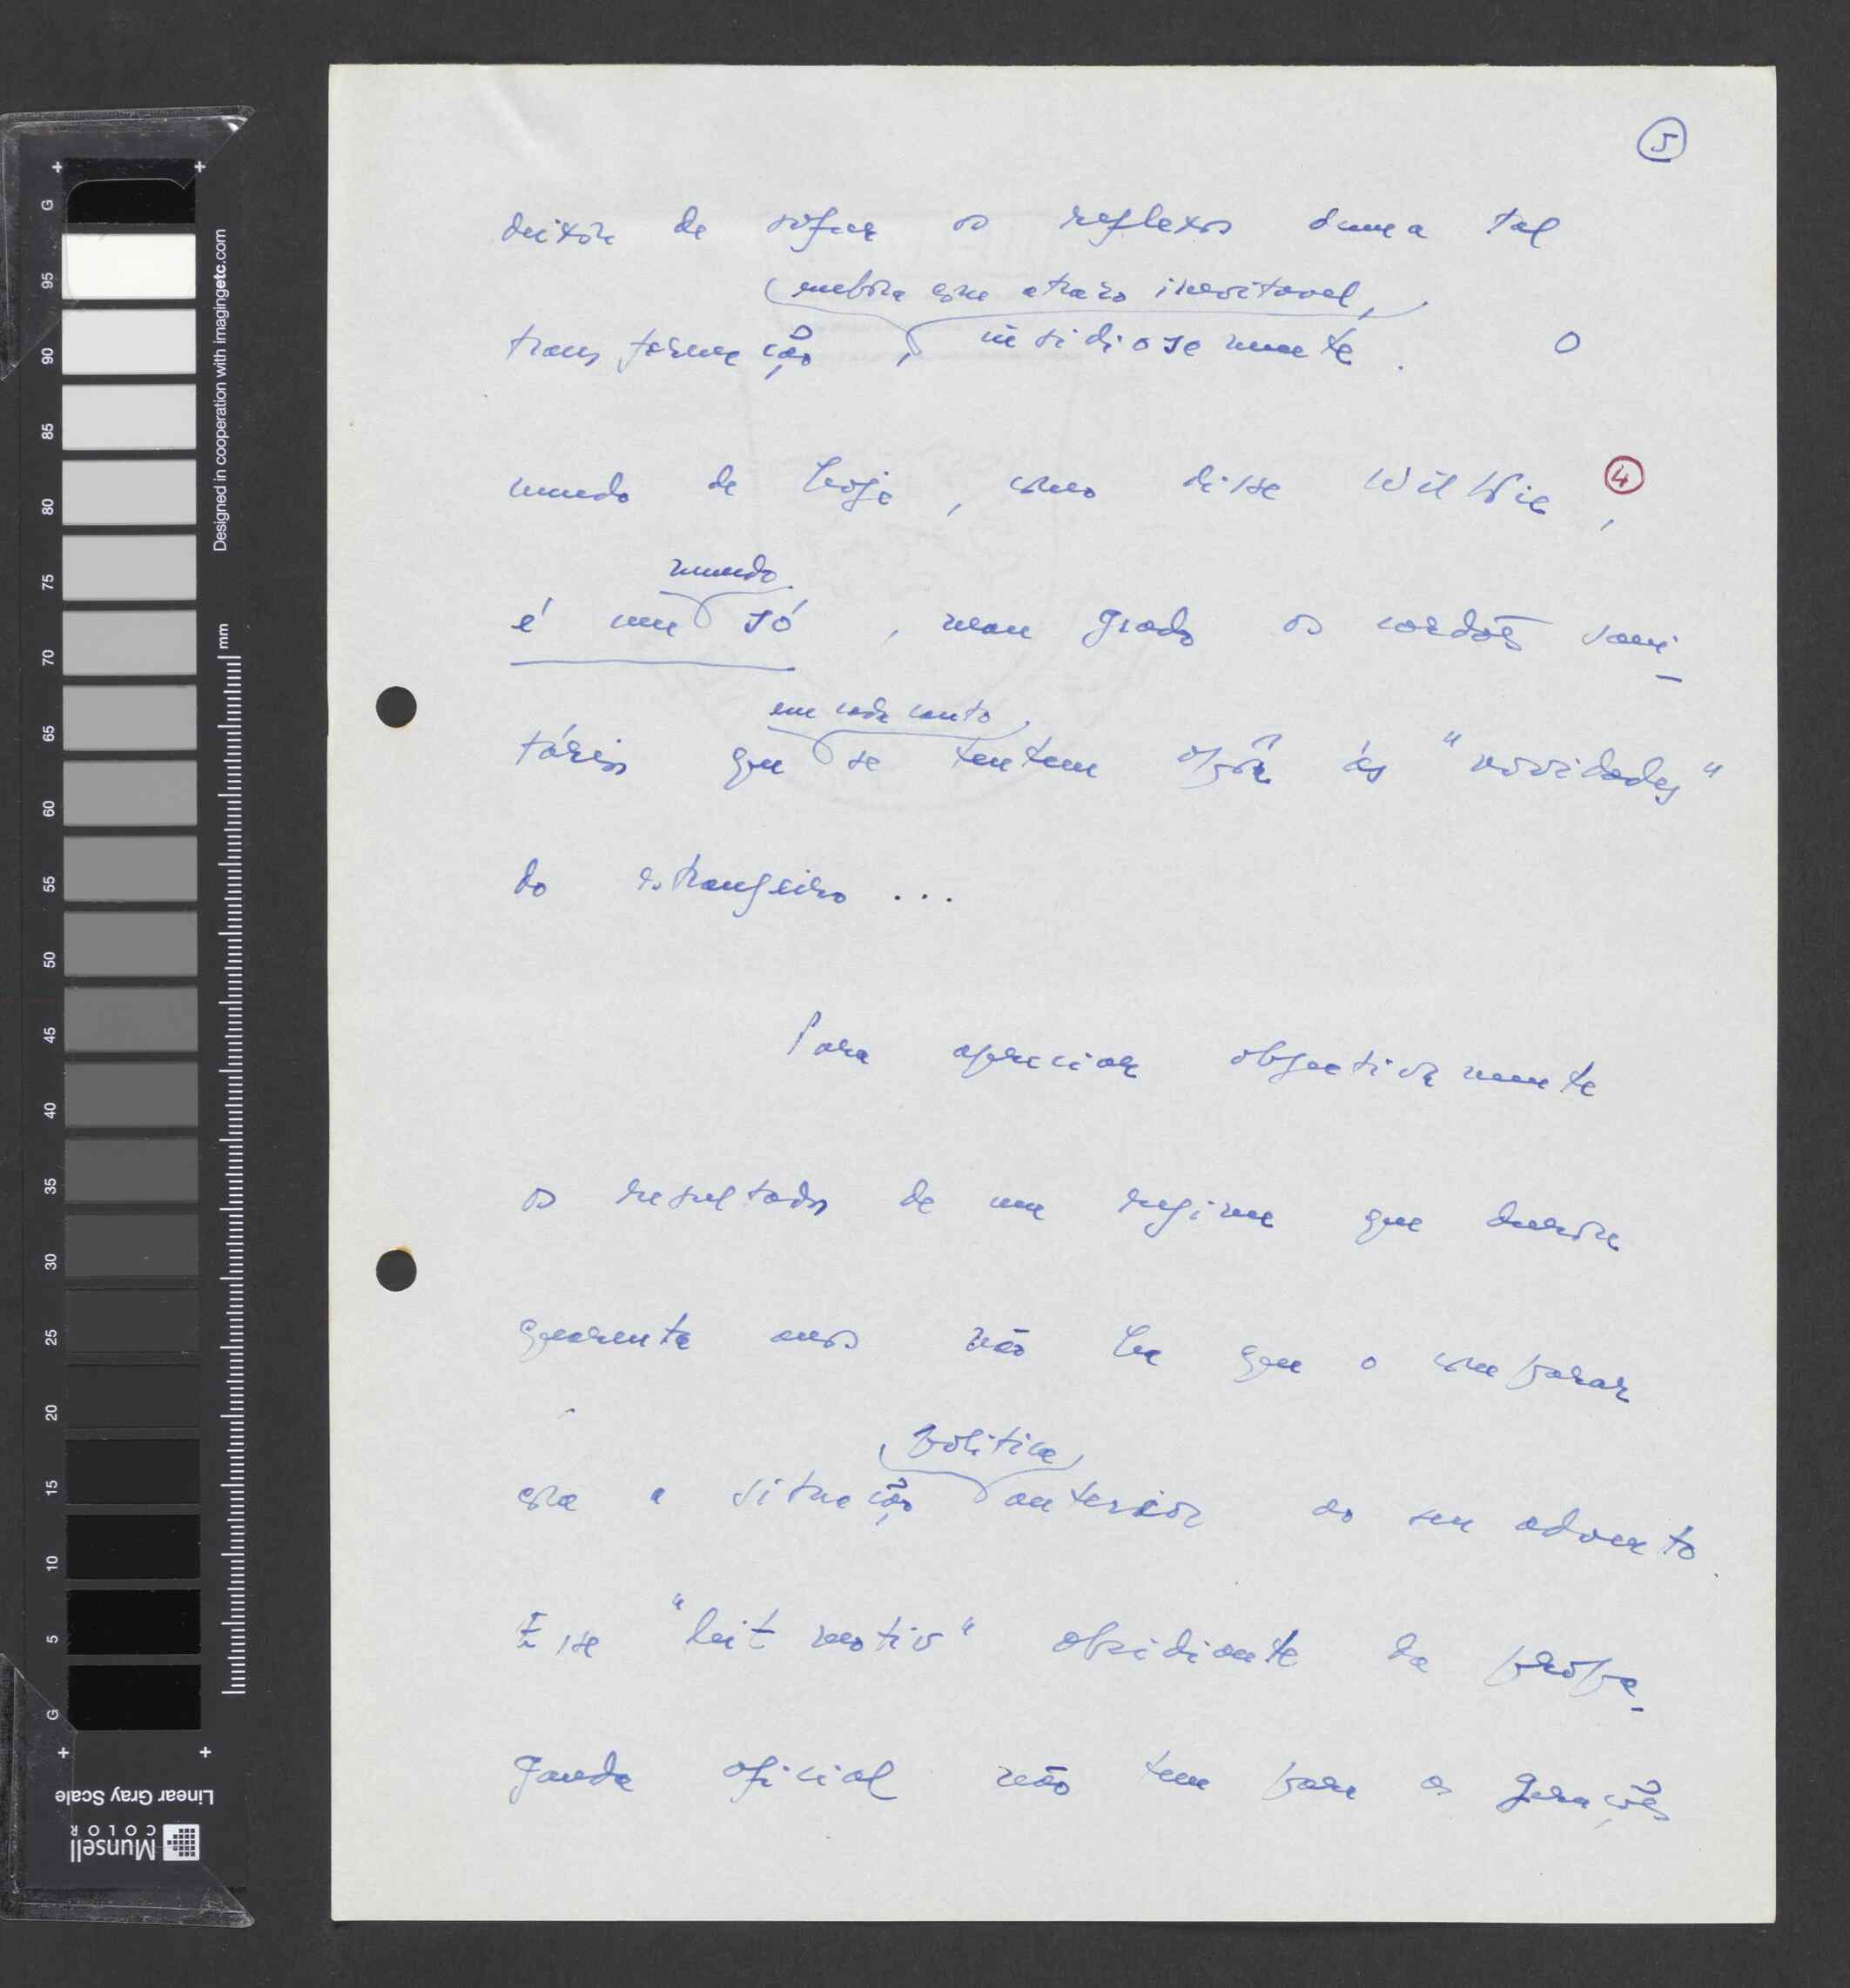 5
deixar de sofrer os reflexos duma tal
embora com atrazo inevitavel,
transformação, insidiosamente. O
mundo de hoje, como disse Wilkie 4,
mundo
é um só, mau grado os cordões sani-
em cada canto
tários que se tentem opôr às "novidades"
do estrangeiro ...
Para apreciar objectivamente
os resultados de um regime que durou
quarenta anos não ha que o comparar
politica
com a situação anterior ao seu advento.
Esse "leit motiv" obsidiante da propa-
ganda oficial não tem para as gerações
G 95 90 85 80 75 70 65 60 55 50 45 40 35 30 25 20 15 10 5 G
mm
Designed in cooperation with imagingetc.com
Linear Gray Scale
Munsell
COLOR